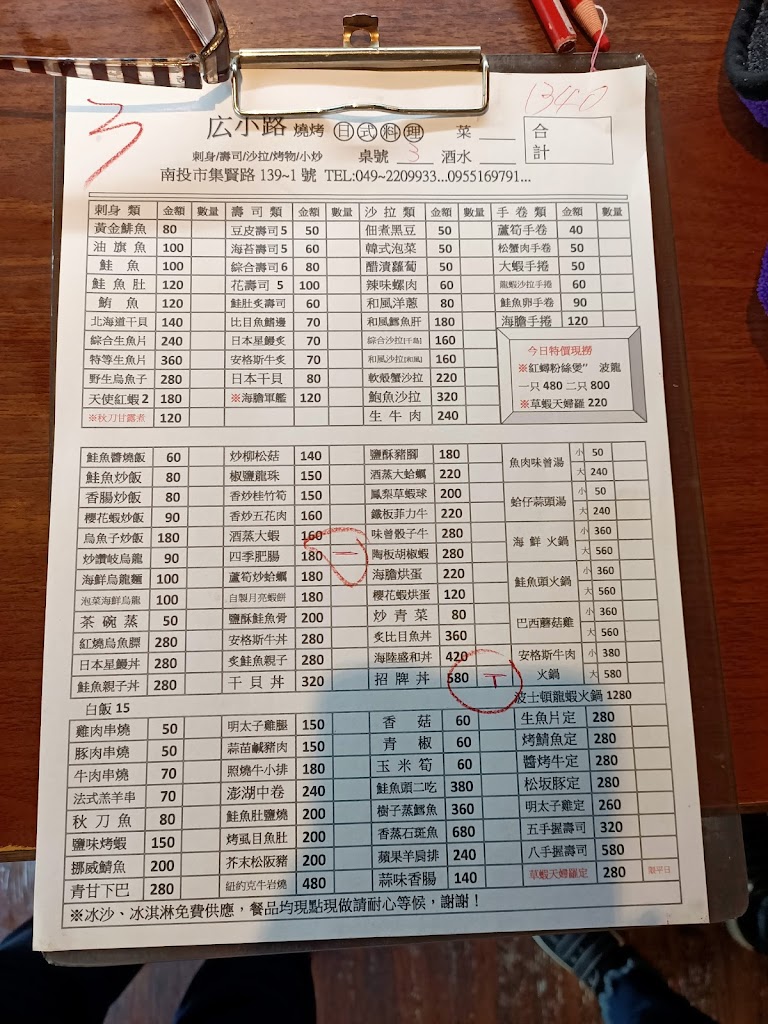 3
1340
広小路 燒烤 日式料理 菜 ___ 合計
刺身/壽司/沙拉/烤物/小炒 桌號 3 酒水 ___
南投市集賢路 139~1 號 TEL:049~2209933...0955169791...
刺身類 金額 數量 壽司類 金額 數量 沙拉類 金額 數量 手卷類 金額 數量
黃金鯡魚 80 豆皮壽司 5 50 佃煮黑豆 50 蘆筍手卷 40
油旗魚 100 海苔壽司 5 60 韓式泡菜 50 松蟹肉手卷 50
鮭魚 100 綜合壽司 6 80 醋漬蘿蔔 50 大蝦手捲 50
鮭魚肚 120 花壽司 5 100 辣味螺肉 60 龍蝦沙拉手捲 60
鮪魚 120 鮭肚炙壽司 60 和風洋蔥 80 鮭魚卵手卷 90
北海道干貝 140 比目魚鰭邊 70 和風鱈魚肝 180 海膽手捲 120
綜合生魚片 240 日本星鰻炙 70 綜合沙拉[千島] 160
特等生魚片 360 安格斯牛炙 70 和風沙拉[和風] 160
野生烏魚子 280 日本干貝 80 軟殼蟹沙拉 220
天使紅蝦 2 180 ※海膽軍艦 120 鮑魚沙拉 320
※秋刀甘露煮 120 生牛肉 240
今日特價現撈
※紅蟳粉絲煲" 波龍
一只 480 二只 800
※草蝦天婦羅 220
鮭魚醬燒飯 60 炒柳松菇 140 鹽酥豬腳 180 魚肉味曾湯 小 50
鮭魚炒飯 80 椒鹽龍珠 150 酒蒸大蛤蠣 220 大 240
香腸炒飯 80 香炒桂竹筍 150 鳳梨草蝦球 200 蛤仔蒜頭湯 小 50
櫻花蝦炒飯 90 香炒五花肉 160 鐵板菲力牛 220 大 240
烏魚子炒飯 180 酒蒸大蝦 160 味曾骰子牛 280 海鮮火鍋 小 360
炒讚岐烏龍 90 四季肥腸 180 一 陶板胡椒蝦 280 大 560
海鮮烏龍麵 100 蘆筍炒蛤蠣 180 海膽烘蛋 220 鮭魚頭火鍋 小 360
泡菜海鮮烏龍 100 自製月亮蝦餅 180 櫻花蝦烘蛋 120 大 560
茶碗蒸 50 鹽酥鮭魚骨 200 炒青菜 80 巴西蘑菇雞 小 360
紅燒烏魚膘 280 安格斯牛丼 280 炙比目魚丼 360 大 560
日本星鰻丼 280 炙鮭魚親子 280 海陸盛和丼 420 安格斯牛肉 小 380
鮭魚親子丼 280 干貝丼 320 招牌丼 580 T 火鍋 大 580
白飯 15 波士頓龍蝦火鍋 1280
雞肉串燒 50 明太子雞腿 150 香菇 60 生魚片定 280
豚肉串燒 50 蒜苗鹹豬肉 150 青椒 60 烤鯖魚定 280
牛肉串燒 70 照燒牛小排 180 玉米筍 60 醬烤牛定 280
法式羔羊串 70 澎湖中卷 240 鮭魚頭二吃 380 松坂豚定 280
秋刀魚 80 鮭魚肚鹽燒 200 樹子蒸鱈魚 360 明太子雞定 260
鹽味烤蝦 150 烤虱目魚肚 200 香蒸石斑魚 680 五手握壽司 320
挪威鯖魚 200 芥末松阪豬 200 蘋果羊肩排 240 八手握壽司 580
青甘下巴 280 紐約克牛岩燒 480 蒜味香腸 140 草蝦天婦羅定 280 限平日
※冰沙、冰淇淋免費供應，餐品均現點現做請耐心等候，謝謝！